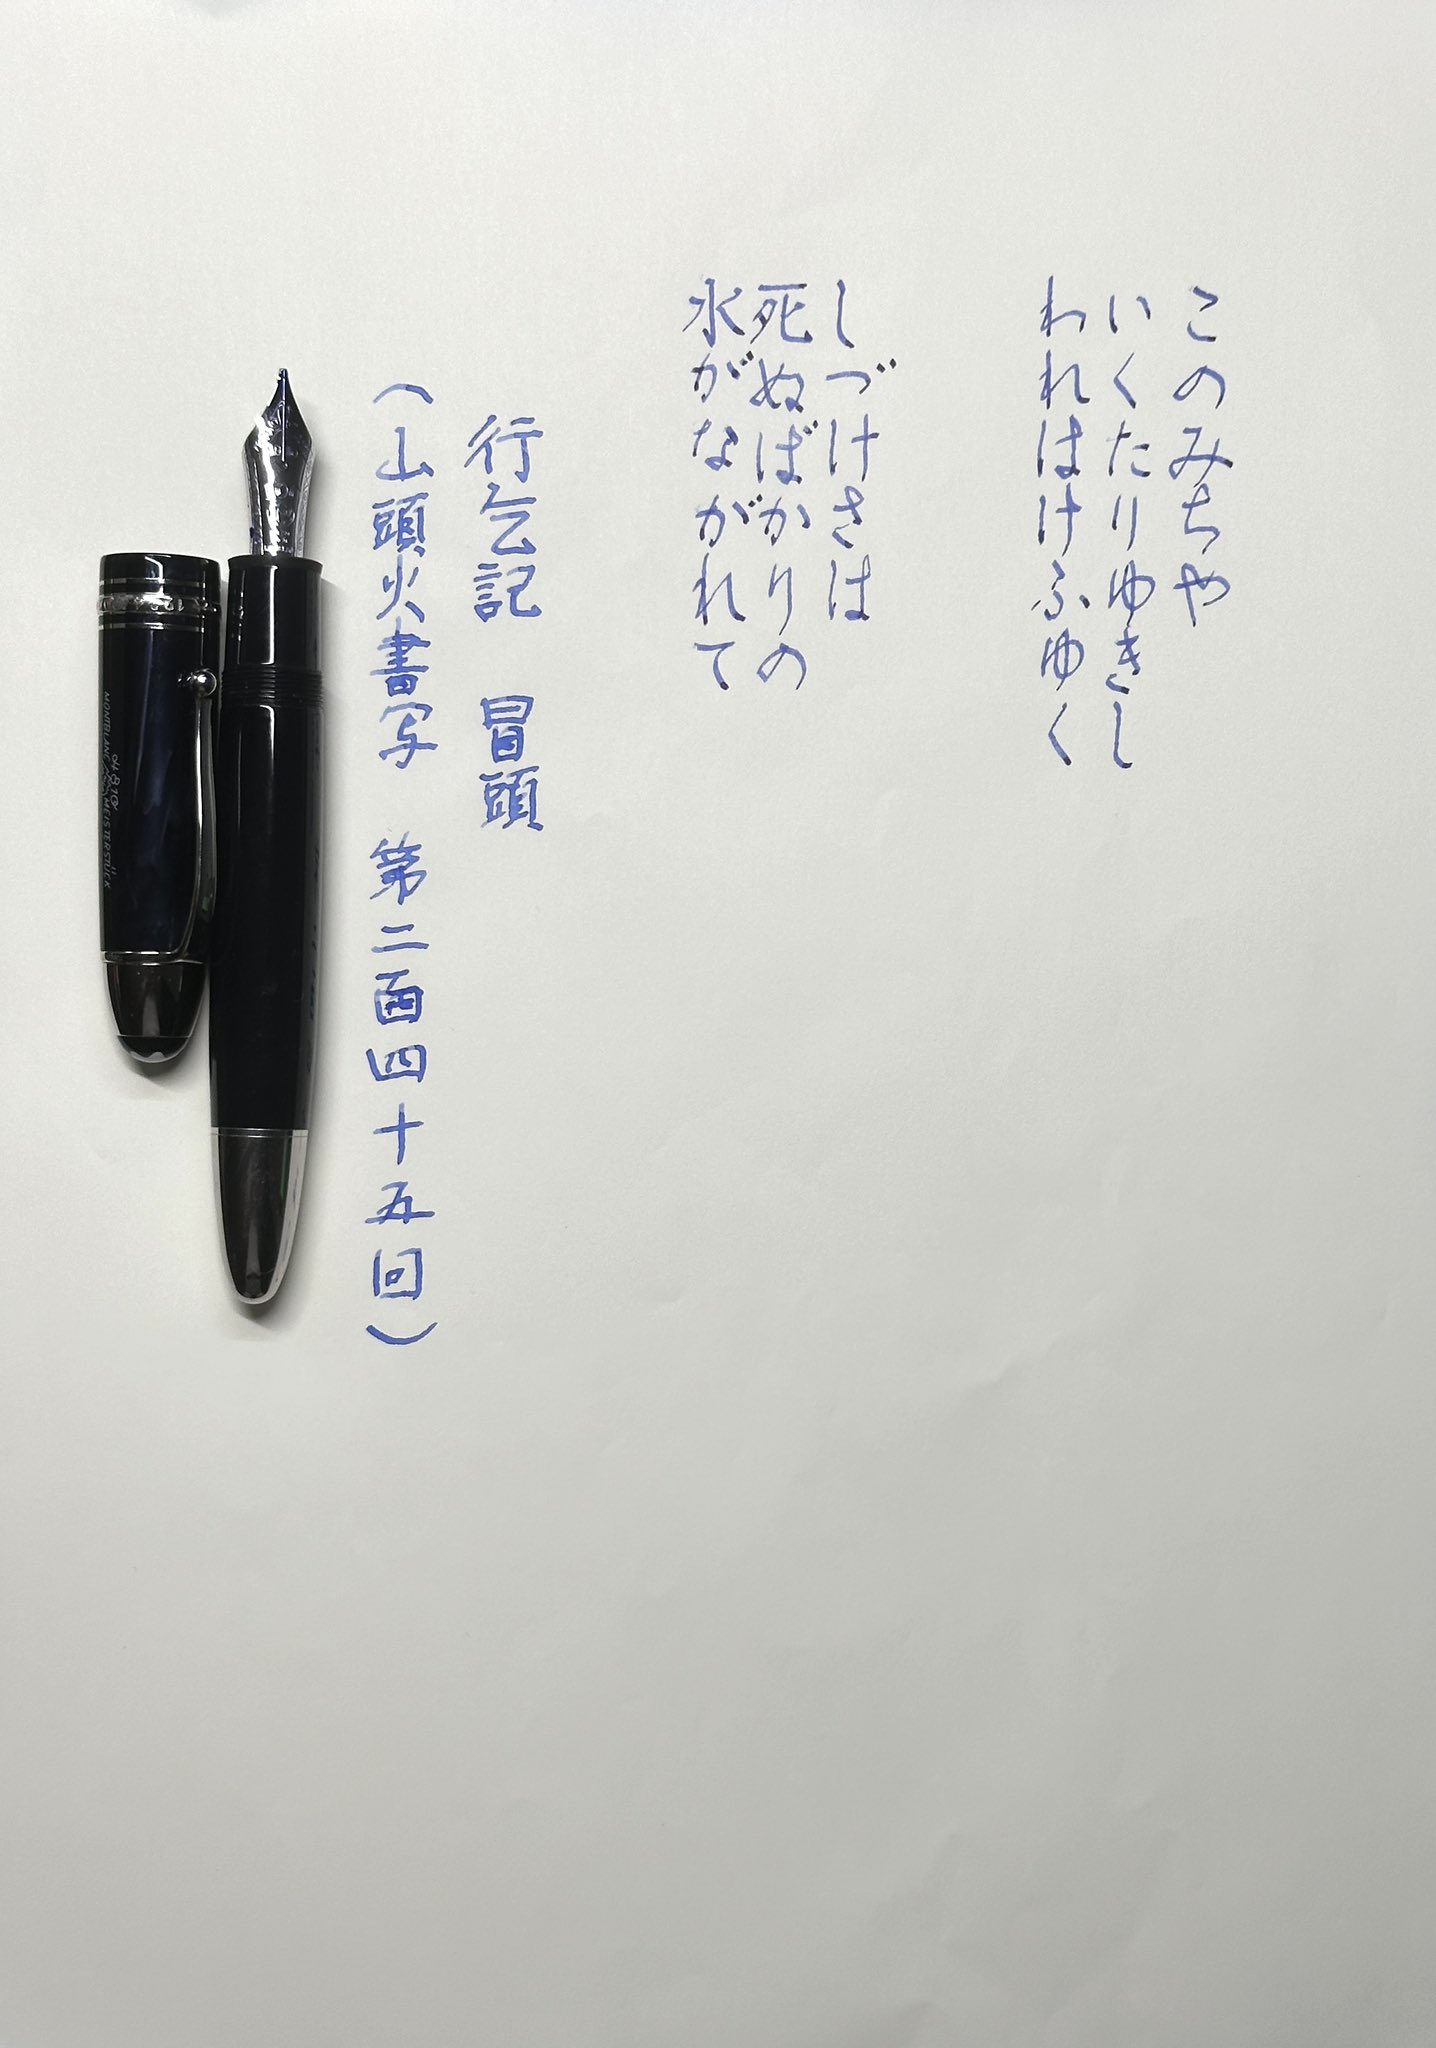 このみちや
いくたりゆきし
われはけふゆく
しづけさは
死ぬばかりの
水がながれて
行乞記　冒頭
（山頭火書写　第二百四十五回）
MONTBLANC MEISTERSTÜCK